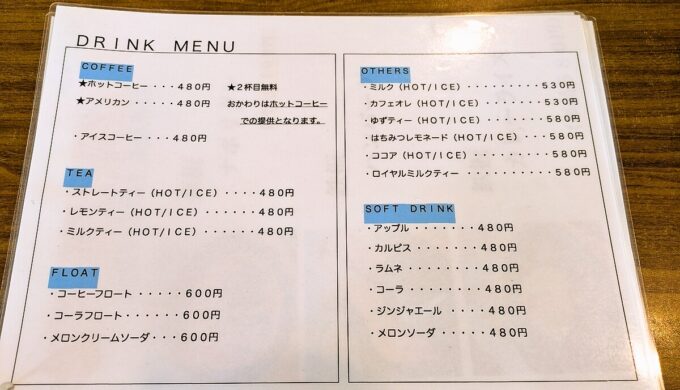 DRINK MENU
COFFEE
★ホットコーヒー・・・480円 ★2杯目無料
★アメリカン・・・・・480円 おかわりはホットコーヒー
での提供となります。
・アイスコーヒー・・・480円
TEA
・ストレートティー(HOT/ICE)・・・・480円
・レモンティー(HOT/ICE)・・・・・・480円
・ミルクティー(HOT/ICE)・・・・・・480円
FLOAT
・コーヒーフロート・・・・・600円
・コーラフロート・・・・・・600円
・メロンクリームソーダ・・・600円
OTHERS
・ミルク(HOT/ICE)・・・・・・・・・530円
・カフェオレ(HOT/ICE)・・・・・・・530円
・ゆずティー(HOT/ICE)・・・・・・・580円
・はちみつレモネード(HOT/ICE)・・・580円
・ココア(HOT/ICE)・・・・・・・・・580円
・ロイヤルミルクティー・・・・・・・・580円
SOFT DRINK
・アップル・・・・・・・480円
・カルピス・・・・・・・480円
・ラムネ・・・・・・・・480円
・コーラ・・・・・・・・480円
・ジンジャエール・・・・480円
・メロンソーダ・・・・・480円